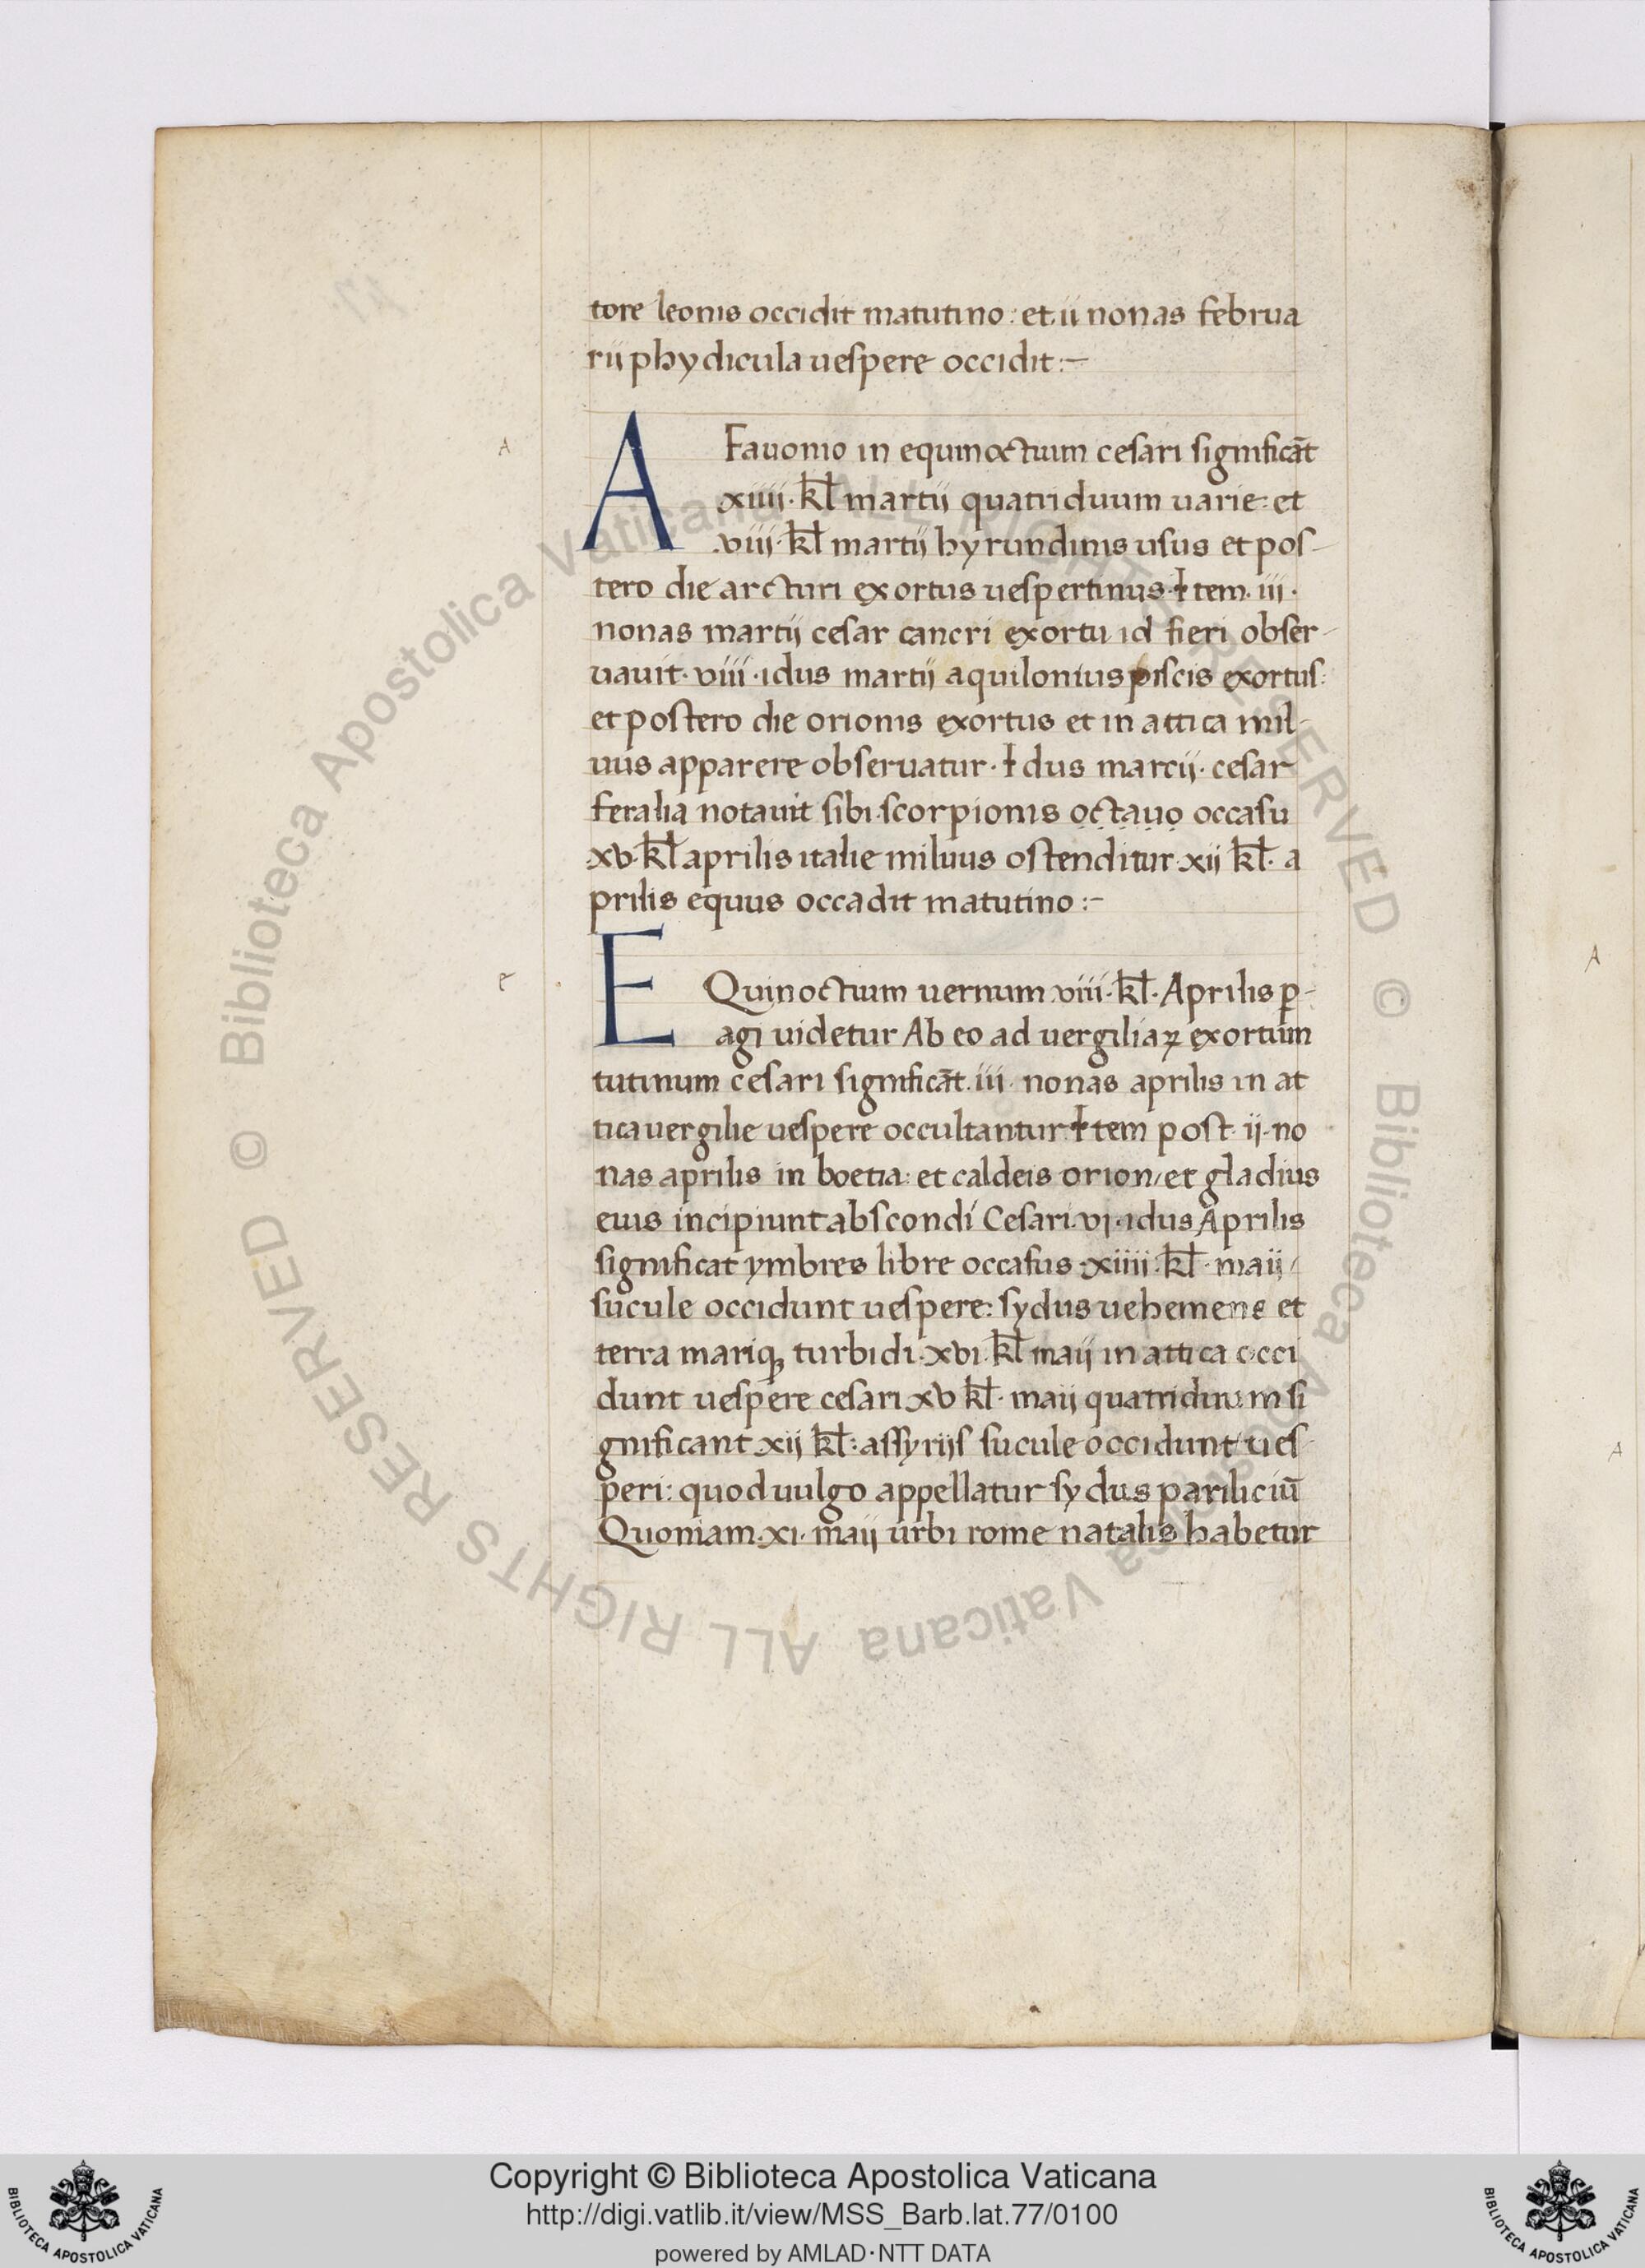 tore leonis occidit matutino: et ii nonas februa
rii phydicula uespere occidit:~
A Fauonio in equinoctium cesari significāt
xiiii· kl̄ martii quatriduum uarie: et
.viii· kl̄ martii hyrundinis uisus et pos-
tero die arcturi exortus uespertinus· Item· iii·
nonas martii cesar cancri exortu id fieri obser-
uauit· viii· idus martii aquilonius piscis exortus:
et postero die orionis exortus et in attica mil-
uus apparere obseruatur· Idus marcii· cesar
feralia notauit sibi scorpionis octauo occasu
·xv· kl̄ aprilis italie miluus ostenditur· xii kl̄· a
prilis equus occadit matutino:~
EQuinoctium uernum viiii· kl̄· Aprilis p̱-
agi uidetur Ab eo ad uergiliaꝝ exortum
tutinum cesari significāt· iii· nonas aprilis in at
tica uergilie uespere occultantur· Item post· ii· no
nas aprilis in boetia: et caldeis orion/ et gladius
eius incipiunt abscondi Cesari· vi· idus Aprilis
significat ymbres libre occasus· xiiii· kl̄· maii/
sucule occidunt uespere: sydus uehemens et
terra mariq; turbidi· xvi· kl̄ maii in attica occi
dunt uespere cesari xv kl̄· maii quatriduum si
gnificant· xii kl̄: assyriis sucule occidunt ues-
peri: quod uulgo appellatur sydus pariliciū
Quoniam· xi· maii urbi rome natalis habetur
A
e
A
A
© Biblioteca Apostolica Vaticana ALL RIGHTS RESERVED © Biblioteca Apostolica Vaticana ALL RIGHTS RESERVED
Copyright © Biblioteca Apostolica Vaticana
http://digi.vatlib.it/view/MSS_Barb.lat.77/0100
powered by AMLAD·NTT DATA
BIBLIOTECA APOSTOLICA VATICANA
BIBLIOTECA APOSTOLICA VATICANA